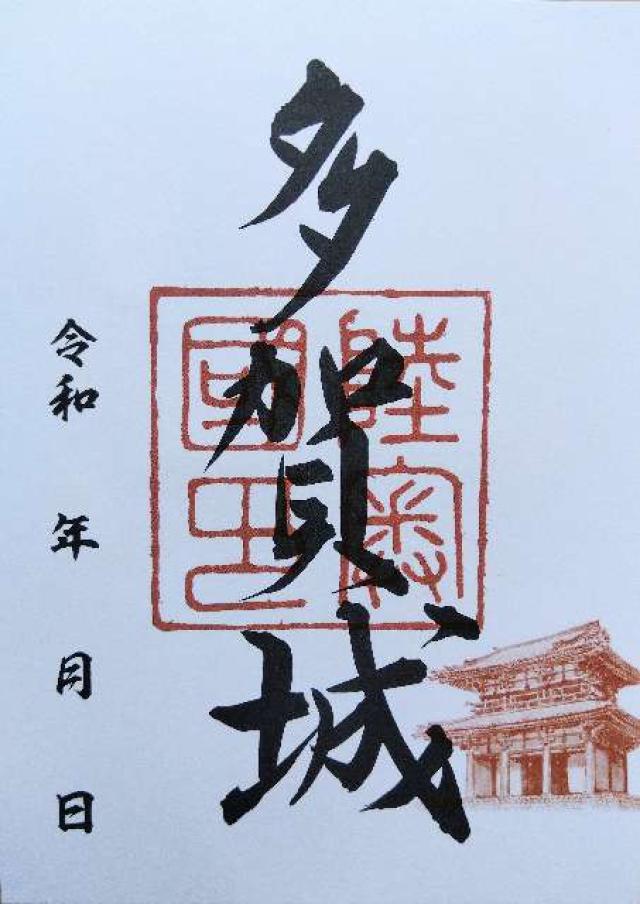 多賀城
陸奥
國印
令和 年 月 日